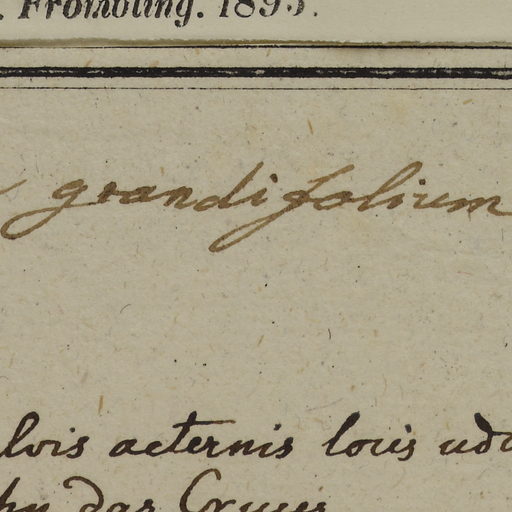 . Frömbling. 1895.
grandifolium
lvis aeternis locis udo